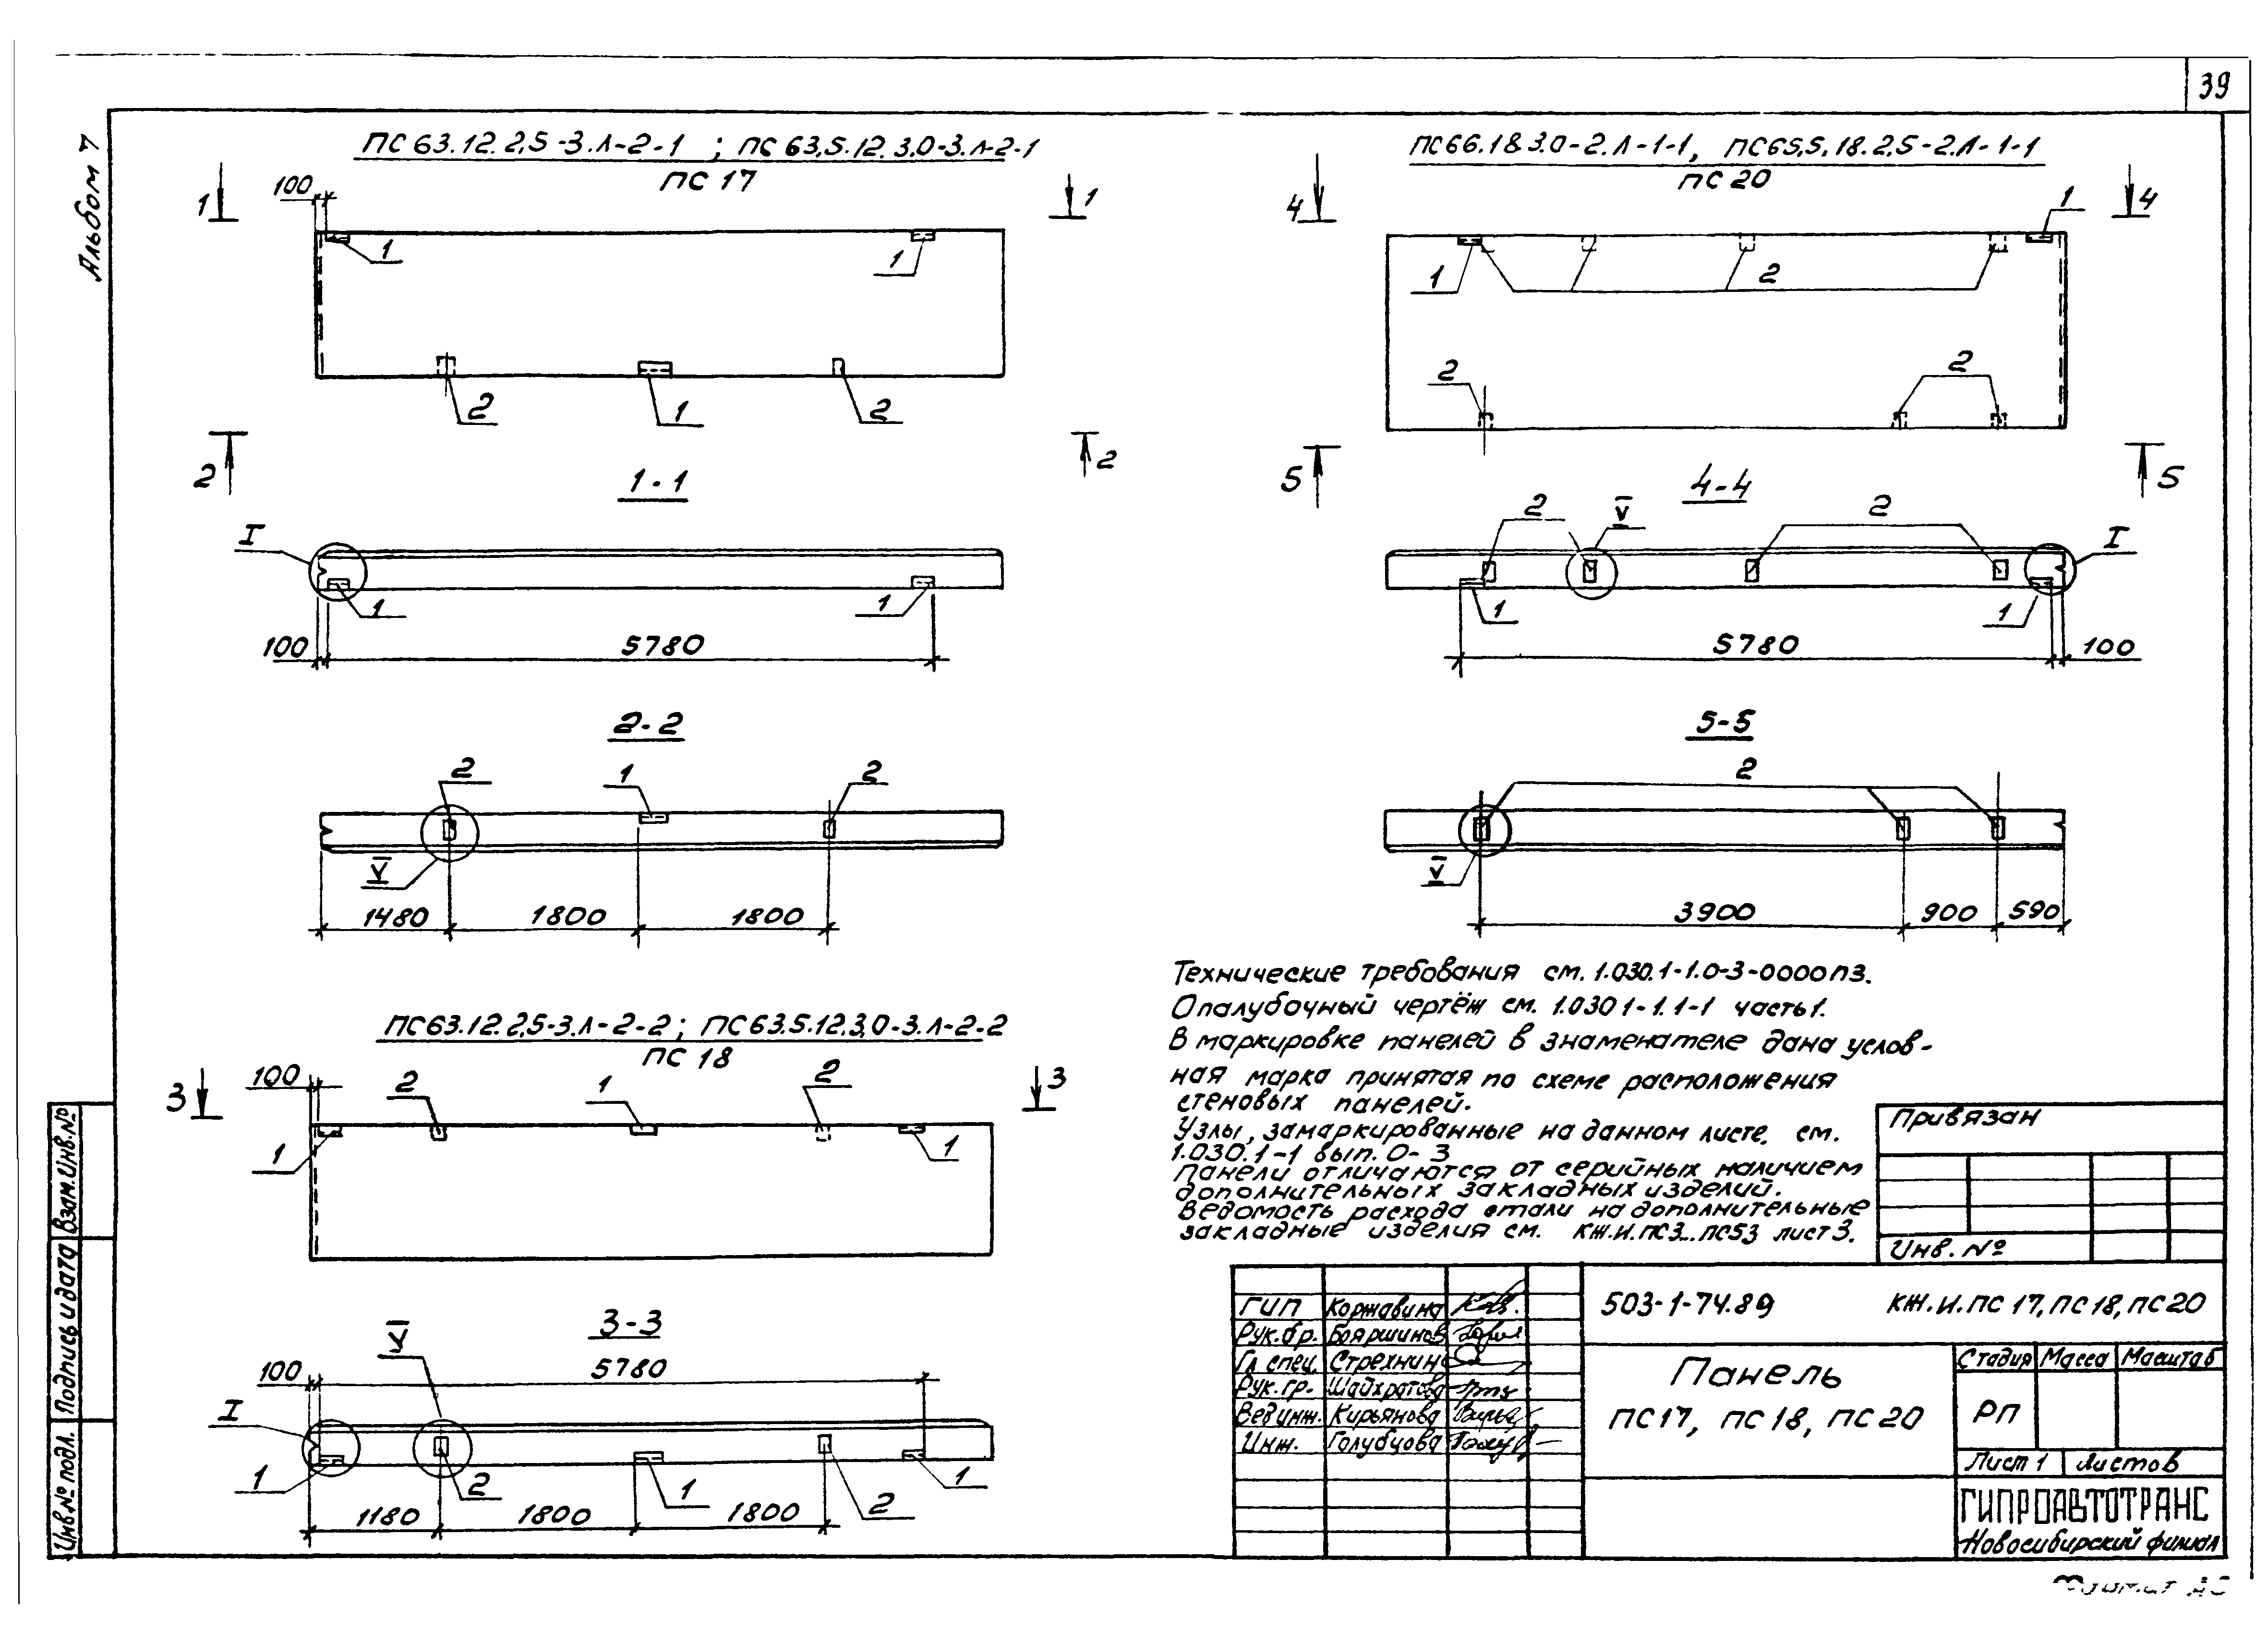 39
Альбом 7
ПС 63.12.2,5-3.Л-2-1 ; ПС 63,5.12.3,0-3.Л-2-1
ПС 17
1 1
100
1 1
2 1 2
2 2
1-1
I
1 1
100 5780
2-2
2 1 2
V
1480 1800 1800
ПС63.12.2,5-3.Л-2-2; ПС63.5.12.3,0-3.Л-2-2
ПС 18
3 3
100 2 1 2
1 1
3-3
V
100 5780
I
1 2 1 2 1
1180 1800 1800
ПС66.18.3.0-2.Л-1-1, ПС65,5,18.2,5-2.Л-1-1
ПС 20
4 4
1
1 2
2 2
5 5
4-4
2 V 2 I
1 1
5780 100
5-5
2
V
3900 900 590
Технические требования см. 1.030.1-1.0-3-0000ПЗ.
Опалубочный чертёж см. 1.030 1-1.1-1 часть 1.
В маркировке панелей в знаменателе дана услов-
ная марка принятая по схеме расположения
стеновых панелей.
Узлы, замаркированные на данном листе, см.
1.030.1-1 вып. 0-3
Панели отличаются от серийных наличием
дополнительных закладных изделий.
Ведомость расхода стали на дополнительные
закладные изделия см. КЖ.И.ПС3...ПС53 лист 3.
Привязан
Инв. №
ГИП Коржавина
Рук.бр. Бояршинов
Гл спец. Стрехнин
Рук.гр. Шайхратова
Вед инж. Кирьянова
Инж. Голубцова
503-1-74.89 КЖ.И.ПС 17, ПС 18, ПС 20
Панель
ПС17, ПС 18, ПС 20
Стадия Масса Масштаб
РП
Лист 1 Листов
ГИПРОАВТОТРАНС
Новосибирский филиал
Взам.Инв.№
Подпись и дата
Инв.№ подл.